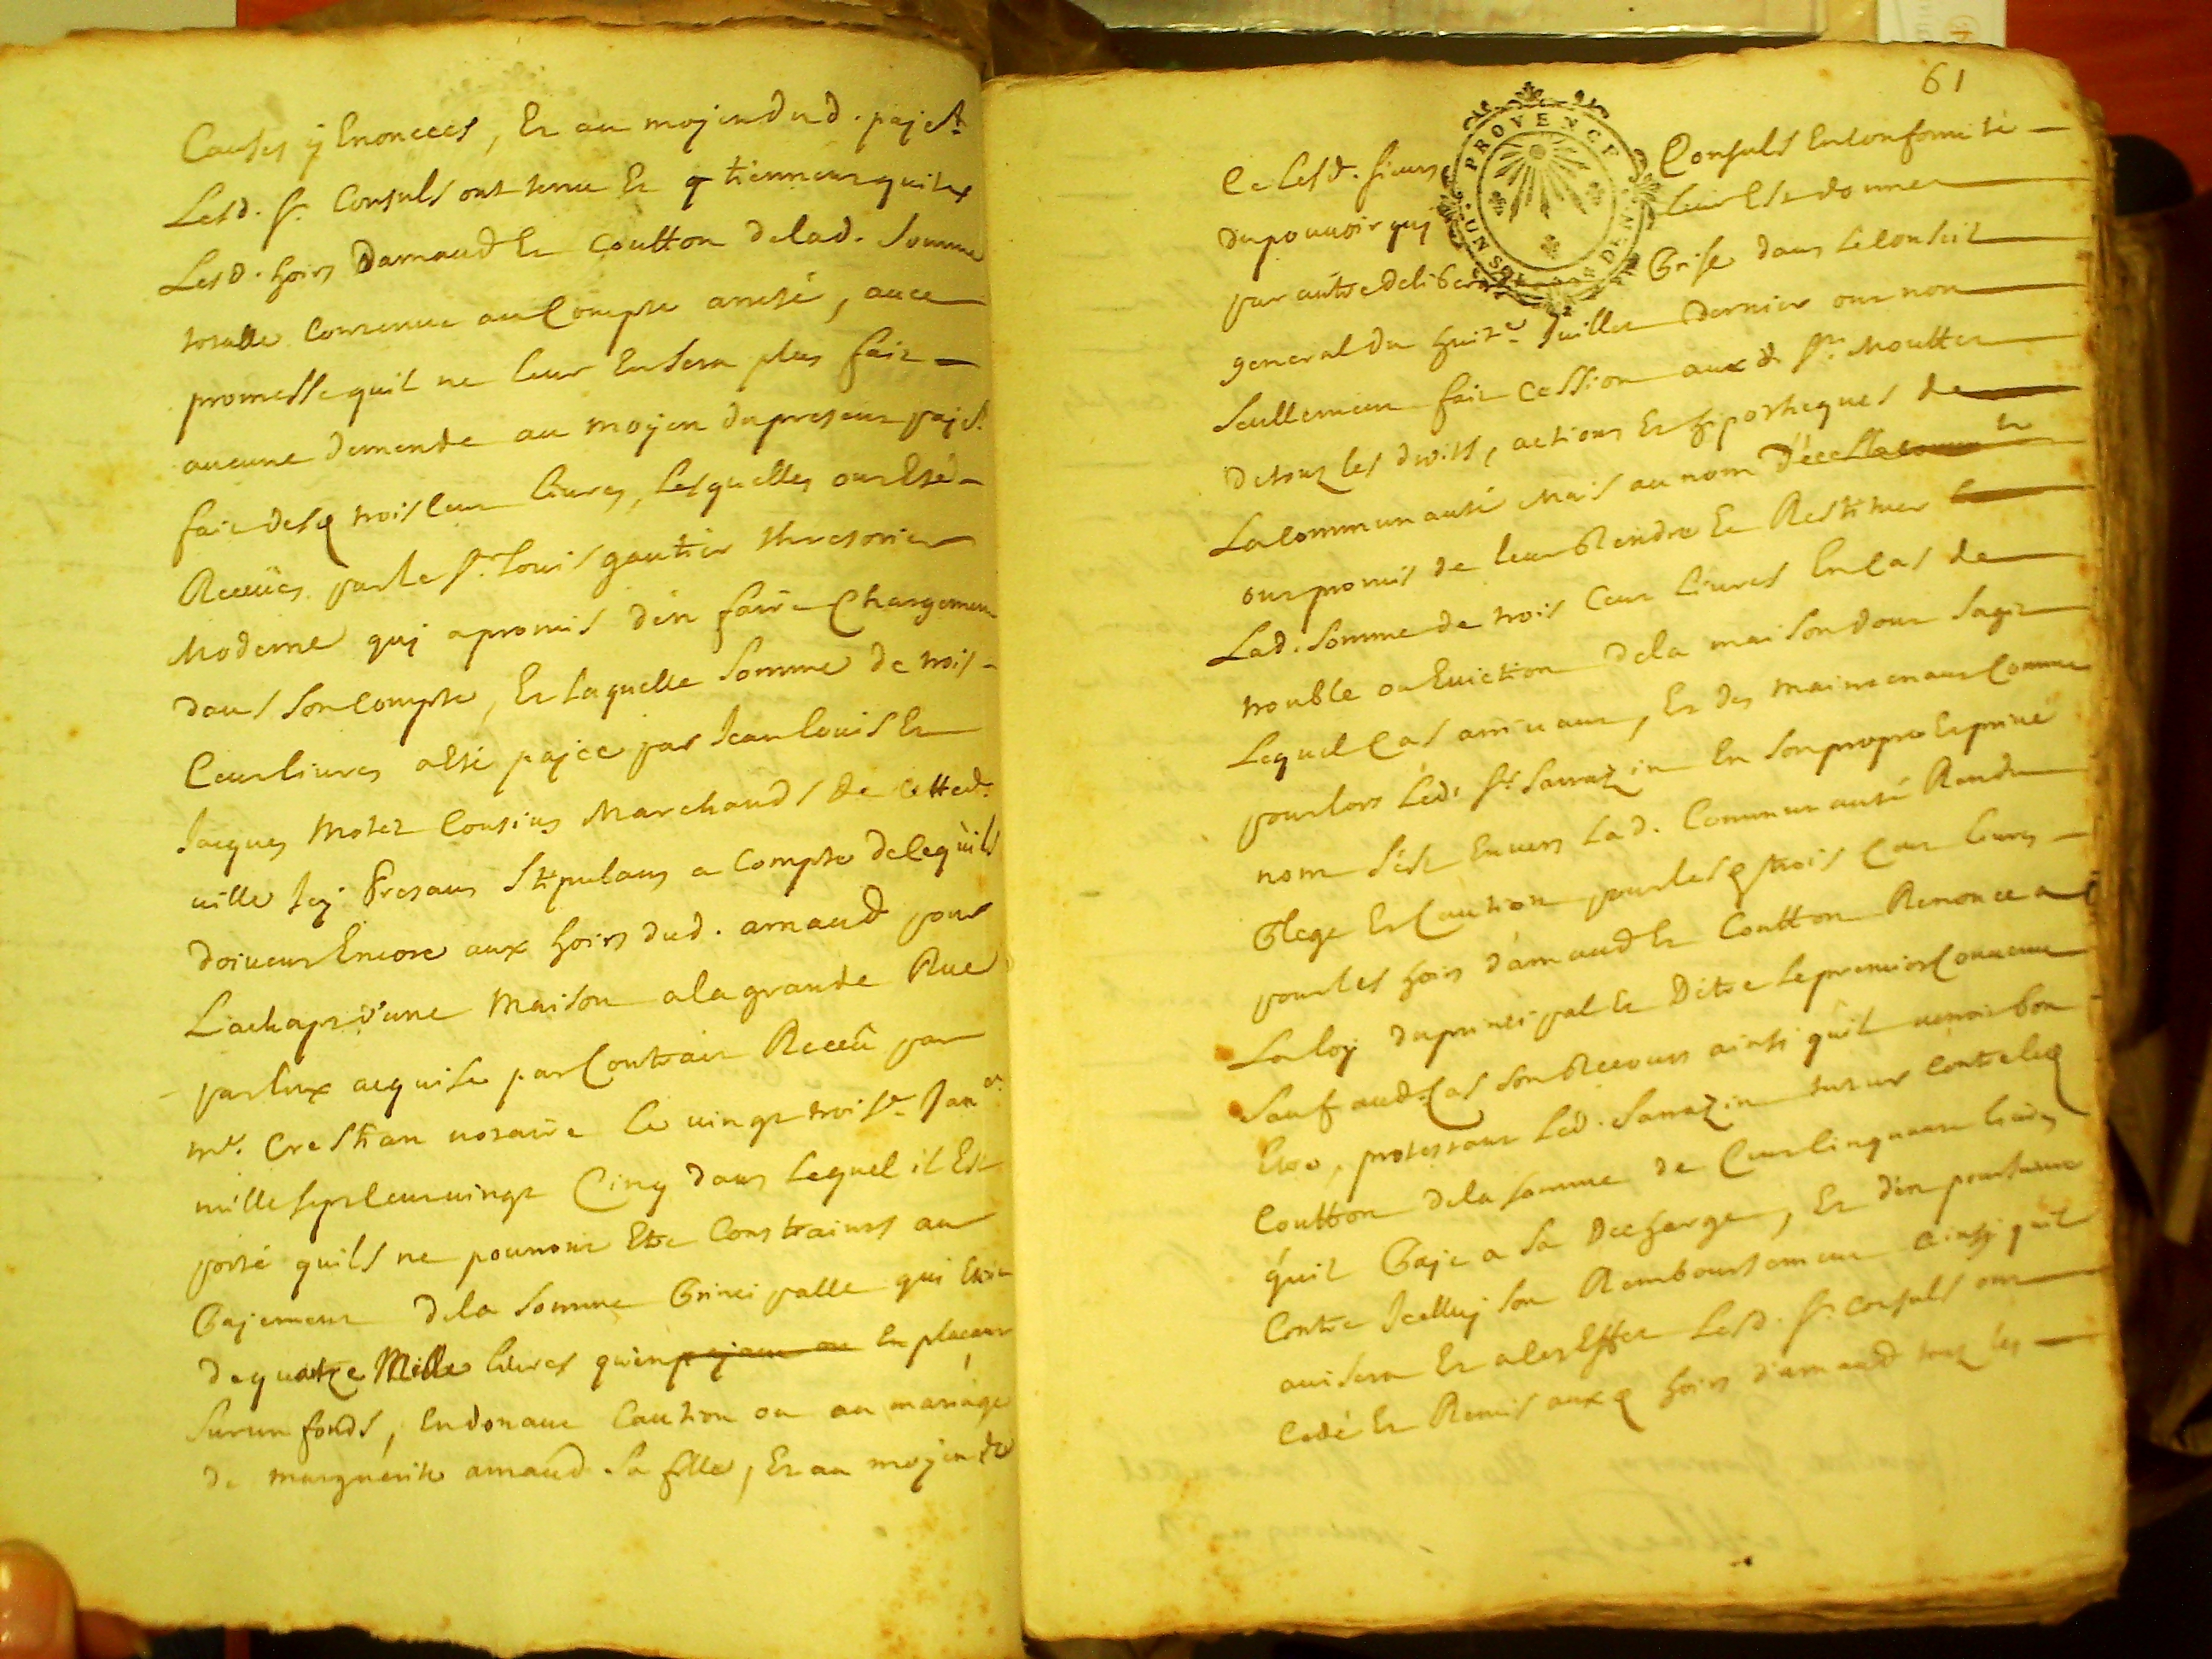 Causes y Enoncees, Et au mojen dud. pajet
Lesd. Srs Consuls ont tenu Et tiennent quites
Lesd. hoirs Darnaud Et Coutton de lad. Somme
totalle Contenue au Compte arresté, avec
promesse quil ne leur En sera plus fait
aucune demende au moyen du present pajet
fait desq trois Cent livres, Lesquelles ont Esté
Receües par le Sr Louis gautier thresorier
Moderne quj a promis d'en faire Chargement
dans Son Compte, Et laquelle Somme de trois
Cent livres a Esté pajée par Jean louis Et
Jacques Motet Cousins Marchands de cetted.
ville Icy Presans Stipulans a Compte de Cequ'ils
doivent Encore aux hoirs dud. arnaud pour
L'achapt d'une Maison a la grande Rue
par Eux acquise par Contrait Receû par
me. Crestian notaire le vingt troise. Janer.
mille sept Cent vingt Cinq dans Lequel il Est
porté quils ne pouront Etre Constraints au
Pajement de la Somme Principalle qui Est
de quatre Mille livres qu'en pajant ou En plaçant
Sur un fonds, En donant Caution ou au mariage
de marguerite arnaud Sa fille, Et au mojen de
61
Ce Lesd. sieurs Consuls En Conformité
du pouvoir quj leur Est donner
par autre deliberaon Prise dans Le Conseil
general du huite. Juillet dernier ont non
Seullement fait Cession auxd. Srs Mouttet
de touz les droits, actions Et hipotheques de
La Communauté Mais au nom d'icelle
ont promis de leur Rendre Et Restituer
Lad. Somme de trois Cent livres En Cas de
trouble ou Eviction de la maison dont Sagit
Lequel Cas arrivant, Et des maintenant Comme
pour lors Led. Sr. Sarrazin En Son propre Et privé
nom S'est Envers Lad. Communauté Rendu
Plege Et Caution pour lesq trois Cent livres
pour les hoirs d'arnaud Et Coutton Renonce a
La loy du principal Et Ditre Le premier Convenu
Sauf aud. Cas Son Recours ainsi qu'il verroit bon
Etre, protestant Led. Sarrazin Contre leq
Coutton de la Somme de Cent Cinquante livres
quil Paje a Sa Decharge, Et d'en poursuivre
Contre Icelluj Son Remboursement ainsj quil
avisera Et a Cet Effet Lesd. Srs Consuls ont
Cedé Et Remis auxq hoirs d'arnaud touz les
PROVENCE
UN SOL
DEN.